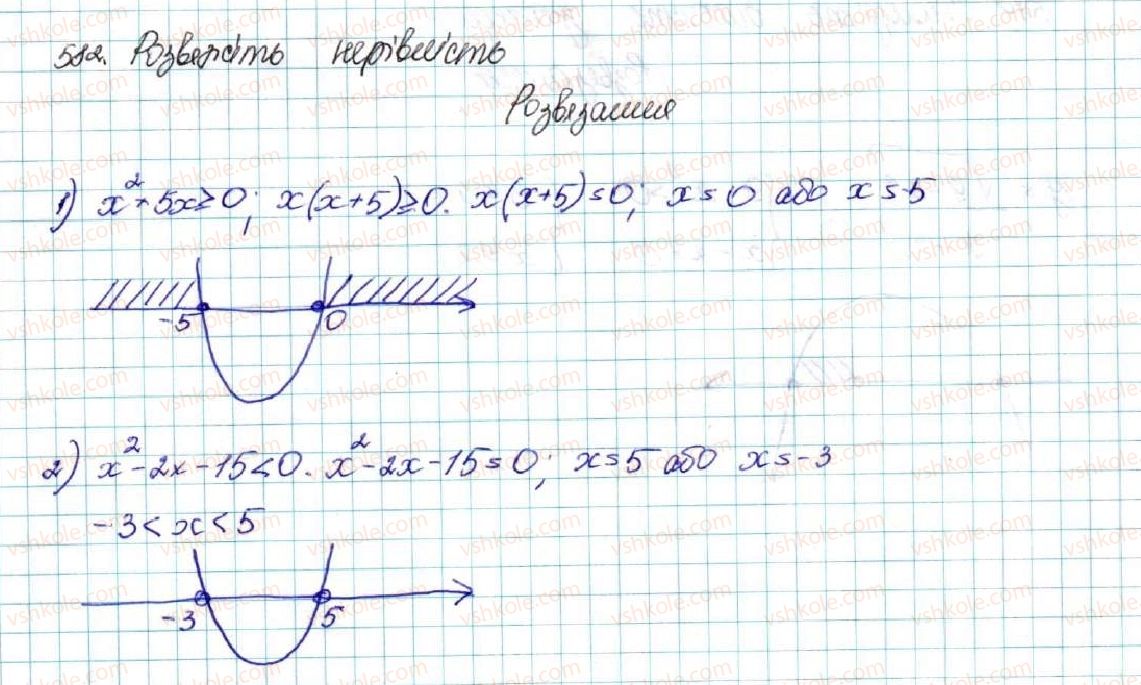 582. Розв'яжіть нерівність
Розв'язання
1) x²+5x≥0; x(x+5)≥0. x(x+5)=0; x=0 або x=-5
-5 0
2) x²-2x-15<0. x²-2x-15=0; x=5 або x=-3
-3<x<5
-3 5
vshkole.com